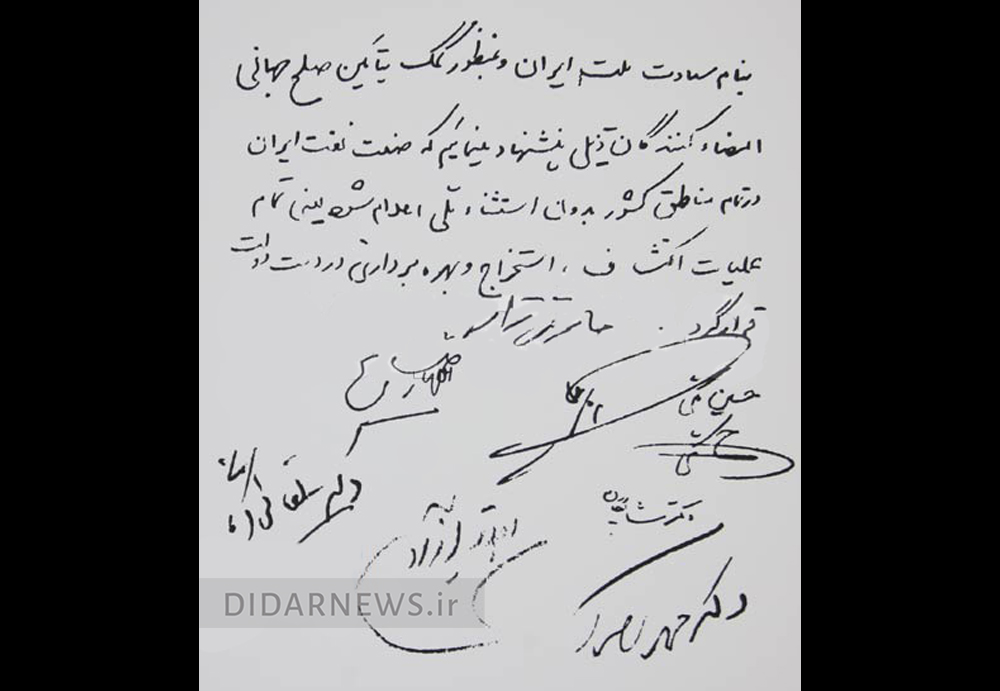 بنام سعادت ملت ایران و بمنظور کمک بتأمین صلح جهانی
امضاء کنندگان ذیل پیشنهاد مینمائیم که صنعت نفت ایران
در تمام مناطق کشور بدون استثناء ملی اعلام شود یعنی تمام
عملیات اکتشاف ، استخراج و بهره برداری در دست دولت
قرار گیرد .
حائری زاده
اللهیار صالح
حسین مکی
دکتر شایگان
دکتر بقائی
آزاد
دکتر محمد مصدق
DIDARNEWS.ir